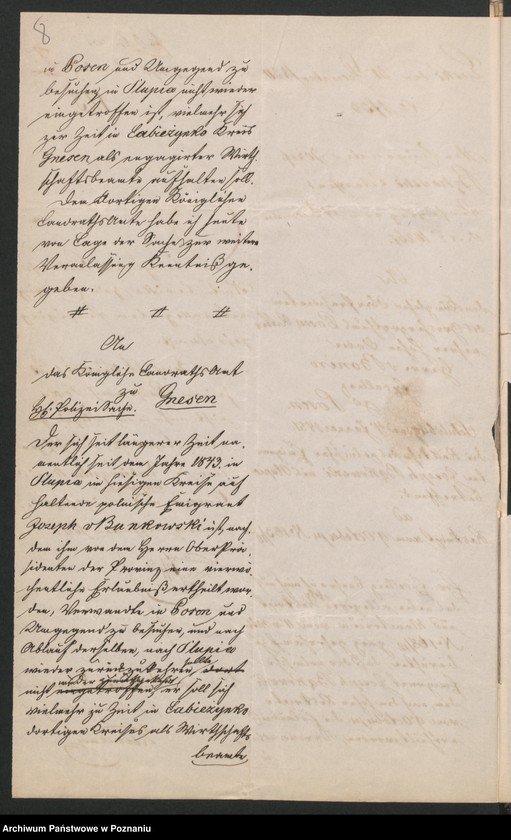 8
in Posen und Umgegend zu
besuchen in Slupia nicht wieder
eingetroffen ist, vielmehr sich
zur Zeit in Labiszynko Kreis
Gnesen als engagirter Wirth-
schaftsbeamte aufhalten soll.
Dem dortigen Königlichen
Landraths Amte habe ich heute
von Lage der Sache zur weitern
Veranlassung Kenntniß ge-
geben.
# # #
An
das Königliche Landraths Amt
zu
Gnesen
Polizei Sache.
Der sich seit längerer Zeit na-
mentlich seit dem Jahre 1873. in
Slupia in hiesigen Kreise auf
haltende polnische Emigrant
Joseph v Bunkowski ist, nach-
dem ihm von dem Herrn Ober Prä-
sidenten der Provinz eine vierwö-
chentliche Erlaubniß ertheilt wor-
den, Verwandte in Posen und
Umgegend zu besuchen, und nach
Ablauf derselben, nach Slupia
wieder zurückzukehren, dort
nicht wieder eingetroffen er soll sich
vielmehr zu Zeit in Labiszynko
dortigen Kreises als Wirthschafts
beamte
Archiwum Państwowe w Poznaniu